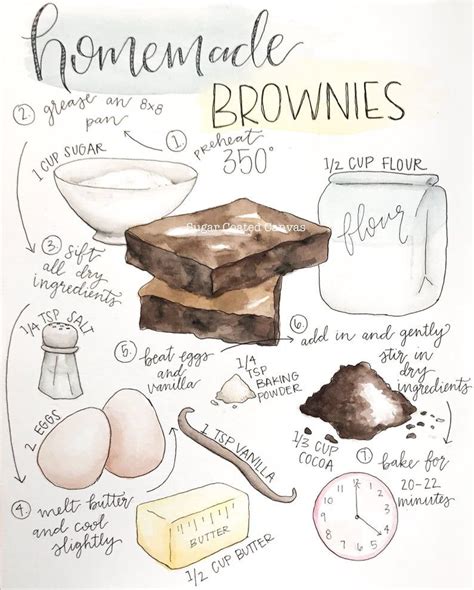 homemade
BROWNIES
1. preheat
350°
2. grease an 8x8
pan
1 CUP SUGAR
1/2 CUP FLOUR
flour
Sugar Coated Canvas
3. sift
all dry
ingredients
1/4 TSP SALT
5. beat eggs
and
vanilla
1/4
TSP
BAKING
POWDER
6. add in and gently
stir in
dry
ingredients
2 EGGS
1 TSP VANILLA
1/3 CUP
COCOA
7. bake for
20-22
minutes
4. melt butter
and cool
slightly
BUTTER
1/2 CUP BUTTER
12
1
2
3
4
5
6
7
8
9
10
11